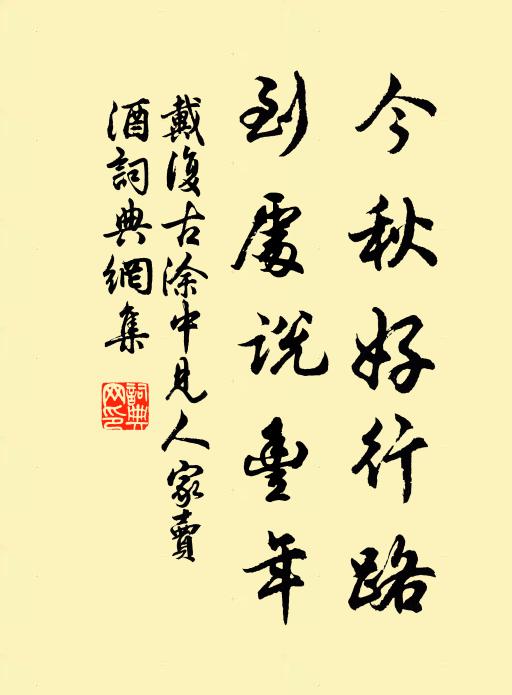 今秋好行路
到處說豐年
戴復古涂中見人家賣
酒詞典網集
詞典
网印